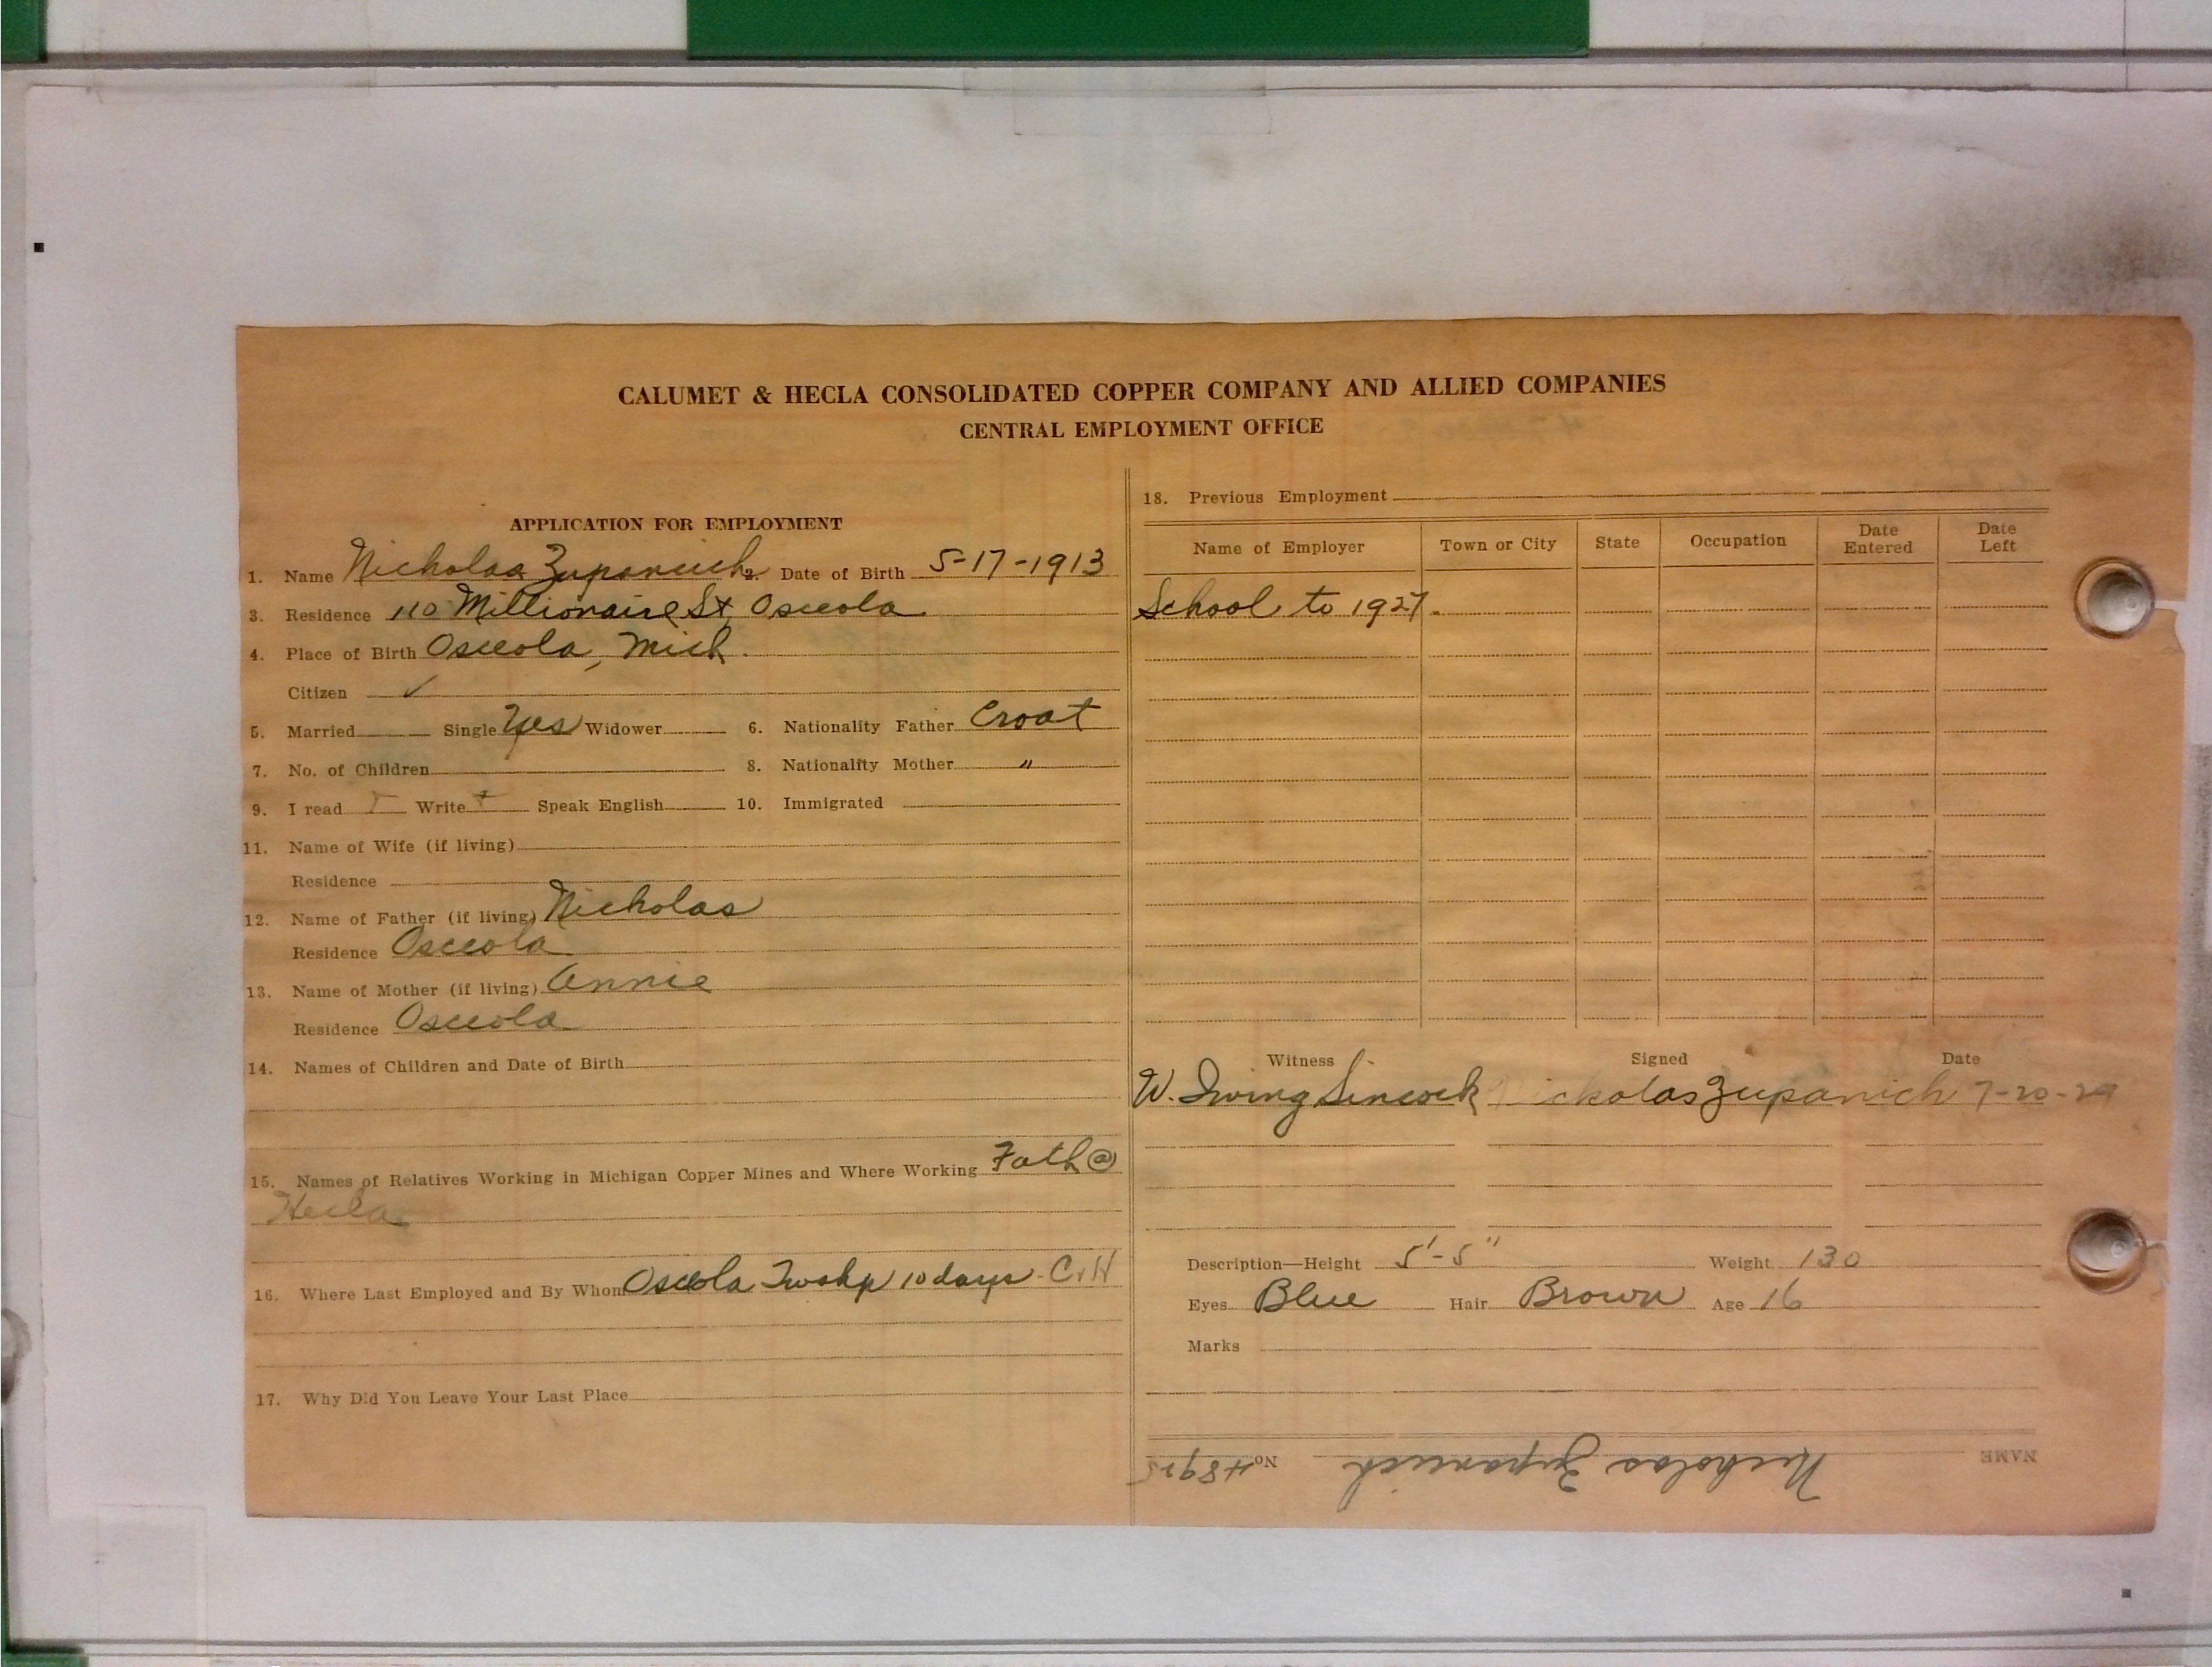 CALUMET & HECLA CONSOLIDATED COPPER COMPANY AND ALLIED COMPANIES
CENTRAL EMPLOYMENT OFFICE
APPLICATION FOR EMPLOYMENT
1. Name Nicholas Zupanich 2. Date of Birth 5-17-1913
3. Residence 110 Millionaire St, Osceola
4. Place of Birth Osceola, Mich.
Citizen ✓
5. Married Single Yes Widower 6. Nationality Father Croat
7. No. of Children 8. Nationality Mother "
9. I read Write Speak English 10. Immigrated
11. Name of Wife (if living)
Residence
12. Name of Father (if living) Nicholas
Residence Osceola
13. Name of Mother (if living) Annie
Residence Osceola
14. Names of Children and Date of Birth
15. Names of Relatives Working in Michigan Copper Mines and Where Working Fath @
Hecla
16. Where Last Employed and By Whom Osceola Twshp 10 days - C & H
17. Why Did You Leave Your Last Place
18. Previous Employment
Name of Employer Town or City State Occupation Date Entered Date Left
School to 1927.
Witness Signed Date
W. Irving Sincock Nickolas Zupanich 7-20-29
Description—Height 5'-5" Weight 130
Eyes Blue Hair Brown Age 16
Marks
NAME Nicholas Zupanich No. 48925